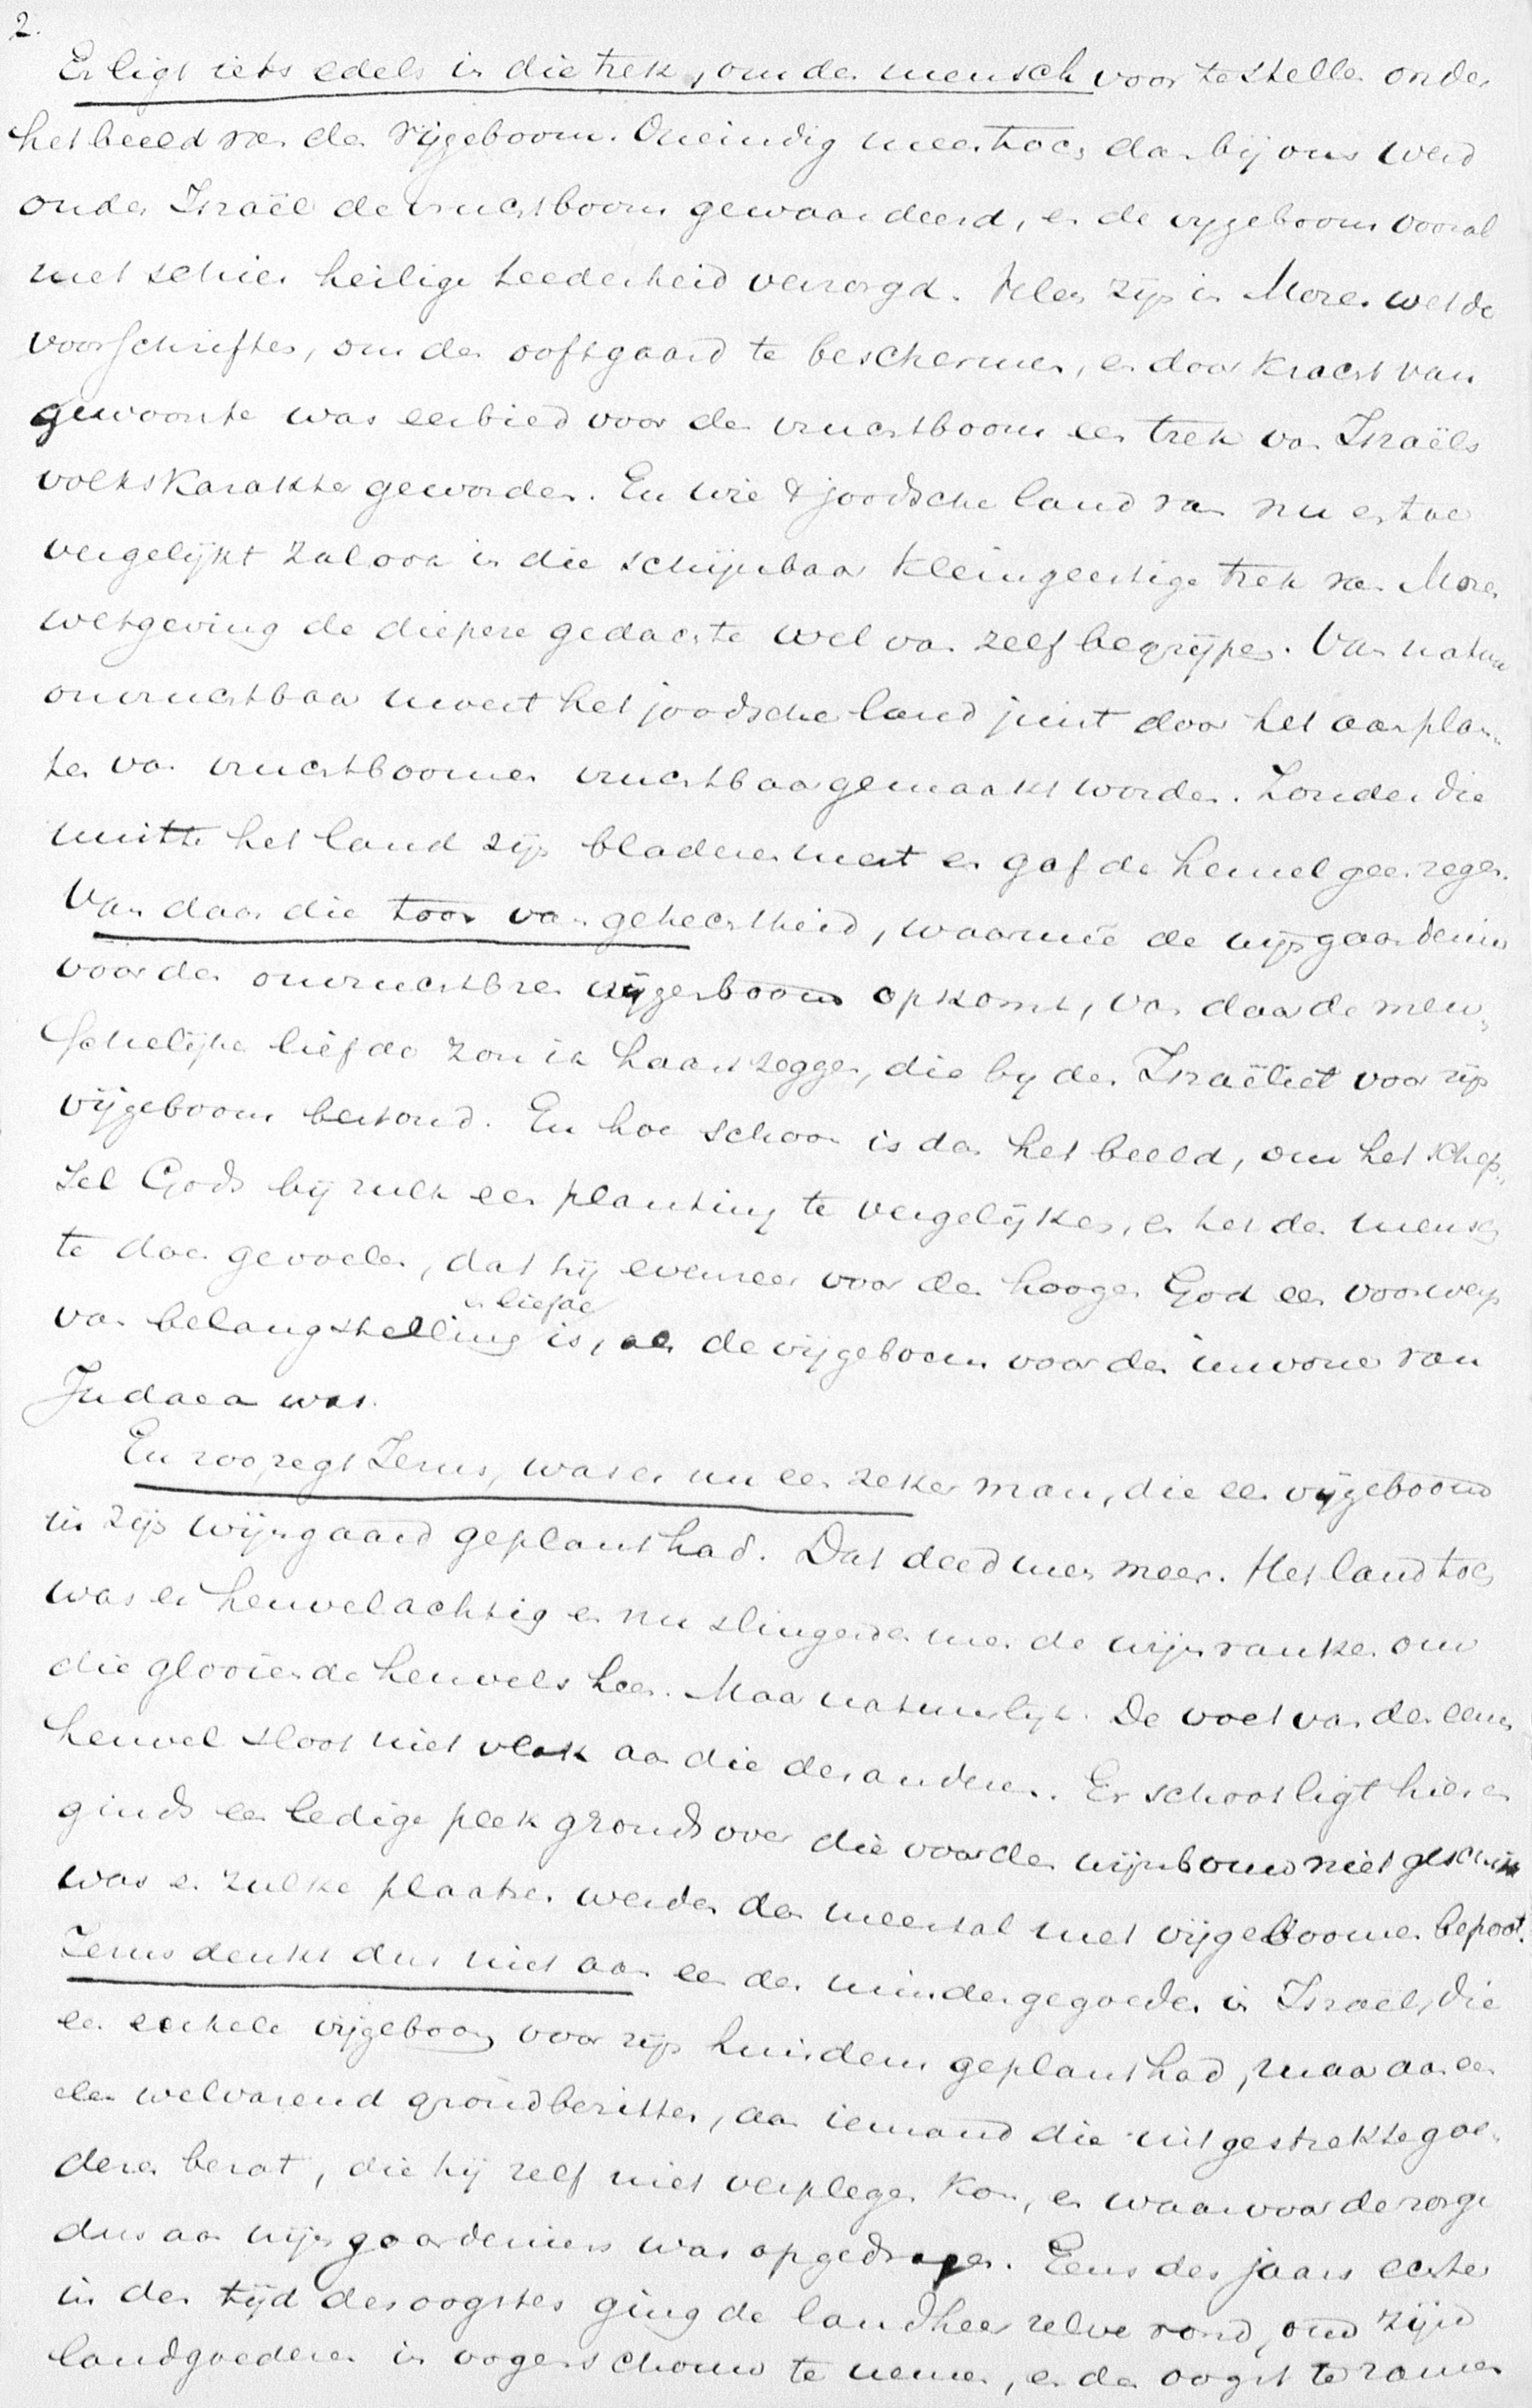 2.
Er ligt iets edels in die trek, om den mensch voor te stellen onder
het beeld van den vijgeboom. Oneindig meer toch dan bij ons werd
onder Israël de vruchtboom gewaardeerd, en de vygeboom vooral
met schier heilige teederheid verzorgd. Velen zijn in Mozes wet de
voorschriften, om den ooftgaard te beschermen, en door kracht van
gewoonte was eerbied voor den vruchtboom een trek van Israëls
volkskarakter geworden. En wie 't joodsche land van nu en toe
vergelijkt zal ook in die schijnbaar kleingeestige trek van Mozes
wetgeving de diepere gedachte wel van zelf begrijpen. Van natuur
onvruchtbaar moest het joodsche land juist door het aanplan-
ten van vruchtboomen vruchtbaar gemaakt worden. Zonder die
miste het land zijn bladeren mest en gaf de hemel geen regen.
Van daar die toon van gehechtheid, waarmeê de wijngaardenier
voor den onvruchtbren vijgenboom opkomt, van daar de men-
schelijke liefde zou ik haast zeggen, die by den Israëliet voor zijn
vijgeboom bestond. En hoe schoon is dan het beeld, om het schep-
sel Gods bij zulk een planting te vergelijken, en het den mensch
te doen gevoelen, dat hij evenzeer voor den hoogen God een voorwerp
van belangstelling en liefde is, als de vijgeboom voor den inwoner van
Judaea was.
En zoo, zegt Jezus, was er nu een zeker man, die een vijgeboom
in zijn wijngaard geplant had. Dat deed men meer. Het land toch
was er heuvelachtig en nu slingerden men de wijnranken om
die glooiende heuvels heen. Maar natuurlijk. De voet van den eenen
heuvel sloot niet vlak aan die des anderen. Er schoot ligt hier en
ginds een ledige plek gronds over die voor den wijnbouw niet geschikt
was en zulke plaatsen werden dan meestal met vijgeboomen bepoot.
Jezus denkt dus niet aan een der mindergegoeden in Israël, die
een enkele vijgeboom voor zijn huisdeur geplant had, maar aan een
een welvarend grondbezitter, aan iemand die uitgestrekte goe-
deren bezat, die hij zelf niet verplegen kon, en waarvoor de zorge
dus aan wijngaardeniers was opgedragen. Eens des jaars echter
in den tijd des oogstes ging de landheer zelve rond, om zijn
landgoederen in oogenschouw te nemen, en den oogst te zamen